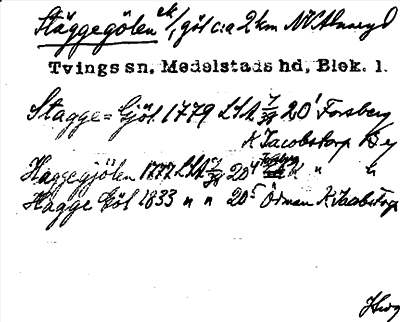 Stäggegölen ek/, göl c:a 2 km NV Alnaryd
Tvings sn. Medelstads hd, Blek. l.
Stagge=Gjöl 1779 LSA 7/38 20¹ Forsberg
K Jacobstorp By
Häggegjölen 1777 LSA 7/38 20⁴ Forsberg K " "
Hägge Göl 1833 " " 20⁵ Örman K Jaabstorp